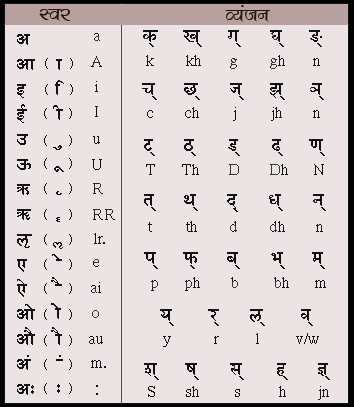 स्वर व्यंजन
अ a
आ ( ा ) A
इ ( ि ) i
ई ( ी ) I
उ ( ु ) u
ऊ ( ू ) U
ऋ ( ृ ) R
ॠ ( ॄ ) RR
ऌ ( ॢ ) lr.
ए ( े ) e
ऐ ( ै ) ai
ओ ( ो ) o
औ ( ौ ) au
अं ( ं ) m.
अः ( ः ) :
क् ख् ग् घ् ङ्
k kh g gh n
च् छ् ज् झ् ञ्
c ch j jh n
ट् ठ् ड् ढ् ण्
T Th D Dh N
त् थ् द् ध् न्
t th d dh n
प् फ् ब् भ् म्
p ph b bh m
य् र् ल् व्
y r l v/w
श् ष् स् ह् ज्ञ्
S sh s h jn